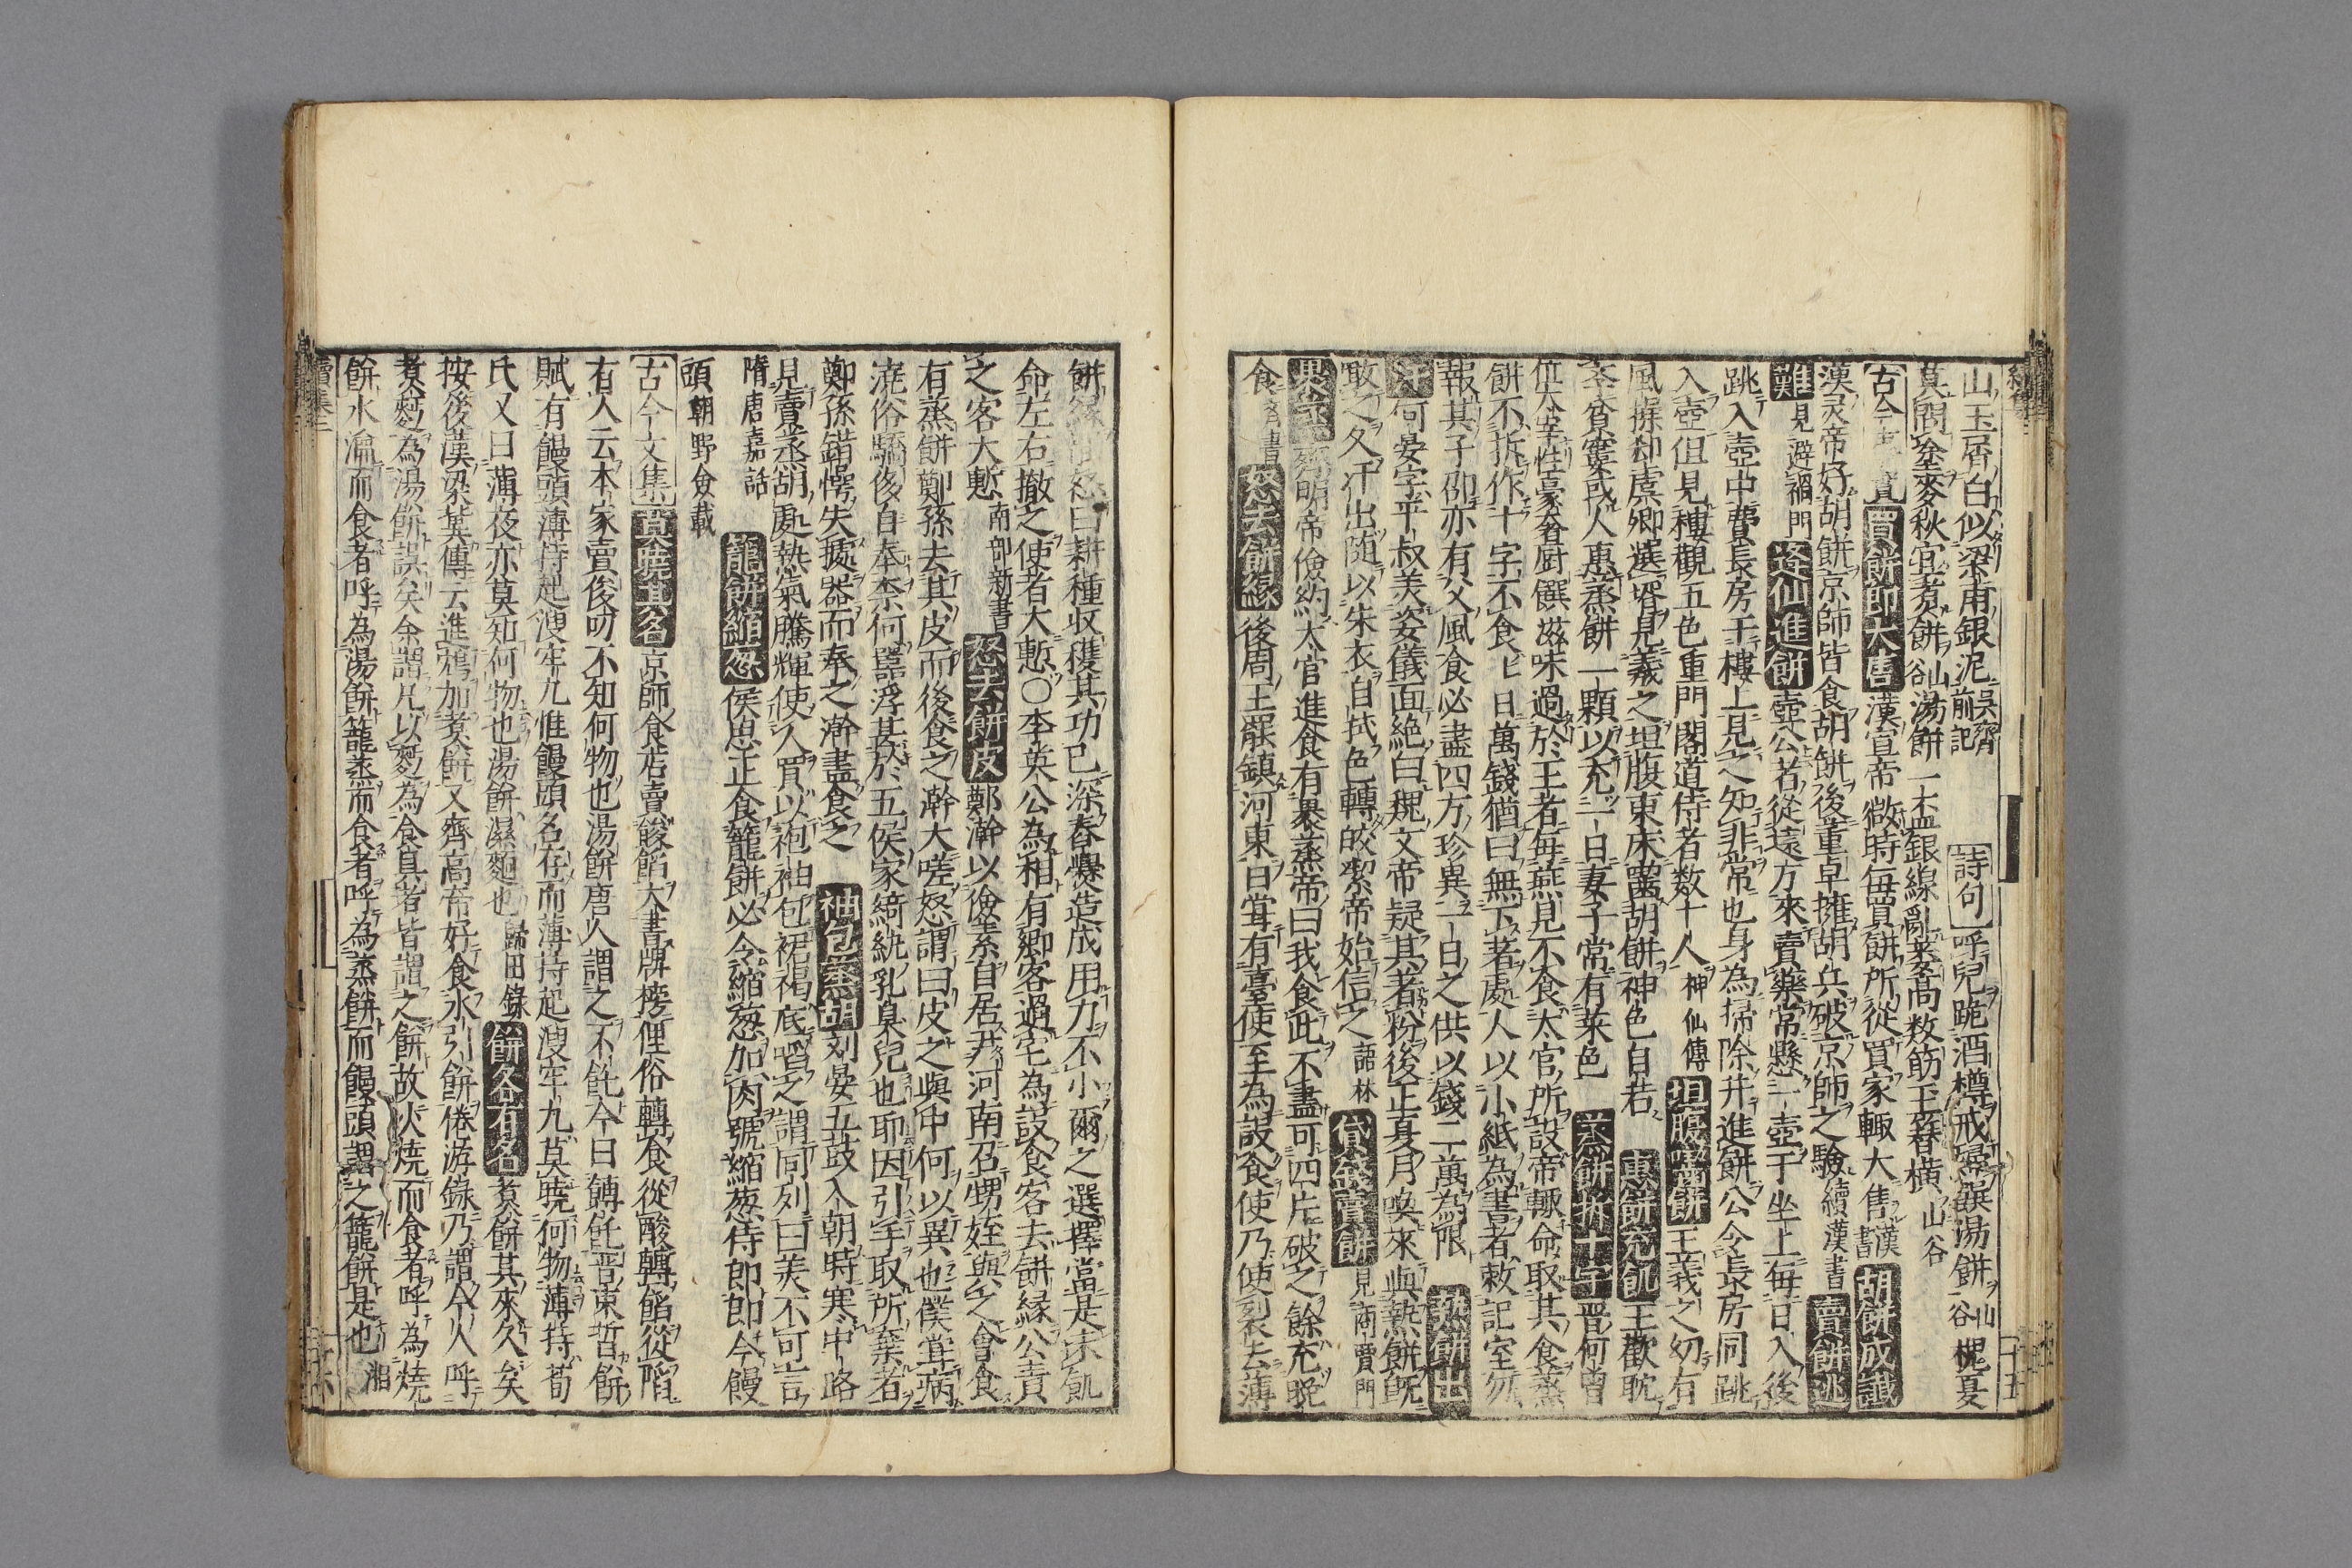 山玉屑白似梁甫銀泥 吳齊前記 詩句 呼兒跪酒樽戒婦饌湯餅 山谷 槐夏
莫問登麥秋宜煑餅 山谷 湯餅一杯銀線亂蔞蒿数筯玉簮橫 山谷
古今事實 買餅即大售 漢宣帝微時每買餅所從買家輙大售 漢書 胡餅成讖
漢灵帝好胡餅京師皆食胡餅後董卓擁胡兵破京師之驗 續漢書 賣餅逃
難 見避禍門 逢仙進餅 壺公者從遠方來賣藥常懸一壺于坐上每日入後
跳入壺中費長房于樓上見之知非常也身為掃除并進餅公令長房同跳
入壺但見樓觀五色重門閣道侍者数十人 神仙傳 坦腹嚙餅 王羲之幼有
風操郄虞卿選壻見羲之坦腹東床嚙胡餅神色自若 惠餅充飢 王歡耽
學貧窶或人惠蒸餅一顆以充一日妻子常有菜色 蒸餅拆十字 晋何曾
位太宰性豪奢厨饌滋味過於王者每燕見不食太官所設帝輙命取其食蒸
餅不拆作十字不食ヒ日萬錢猶曰無下著處人以小紙為書者敕記室勿
報其子劭亦有父風食必盡四方珍異一日之供以錢二萬為限 熱餅出
汗 何晏字平叔美姿儀面絶白魏文帝疑其著粉後正夏月喚來與熱餅既
敢之久汗出随以朱衣自拭色轉皎潔帝始信之 語林 貸錢賣餅 見商賈門
裹蒸 齊明帝儉約太官進食有裹蒸帝曰我食此不盡可四片破之餘充晚
食 齊書 怒去餅緣 後周王羆鎮河東日嘗有臺使至為設食使乃使裂去薄
餅緣羆怒曰耕種収穫其功已深舂爨造成用力不小爾之選擇當是未飢
命左右撤之使者大慙〇李英公為相有鄉客過宅為設食客去餅緣公責
之客大慙 南部新書 怒去餅皮 鄭澣以儉素自居尹河南召甥姪與之會食
有蒸餅鄭孫去其皮而後食之澣大嗟怒謂曰皮之與中何以異也僕嘗病
澆俗驕侈自奉柰何囂浮甚於五侯家綺紈乳臭兒也耶因引手取所棄者
鄭孫錯愕失據器而奉之澣盡食之 袖包蒸胡 刘晏五鼓入朝時寒中路
見賣蒸胡處熱氣騰輝使人買以袍袖包裙褐底啗之謂同列曰美不可言
隋唐嘉話 籠餅縮葱 侯思正食籠餅必令縮葱加肉號縮葱侍郎即今饅
頭 朝野僉載
古今文集 莫曉其名 京師食店賣餕餡大書牌榜俚俗轉食從酸轉餡從䧟
有人云本家賣俊叨不知何物也湯餅唐人謂之不飥今曰餺飥晋束晢餅
賦有饅頭薄持起溲牢九惟饅頭名存而薄持起溲牢九莫曉何物薄持荀
氏又曰薄夜亦莫知何物也湯餅濕麵也 歸田錄 餅各有名 煑餅其來久矣
按後漢梁冀傳云進鴆加煑餅又齊高帝好食水引餅倦游錄乃謂今人呼
煑麪為湯餅誤矣余謂凡以麪為食具者皆謂之餅故火燒而食者呼為燒
餅水瀹而食者呼為湯餅籠蒸而食者呼為蒸餅而饅頭謂之籠餅是也 湘